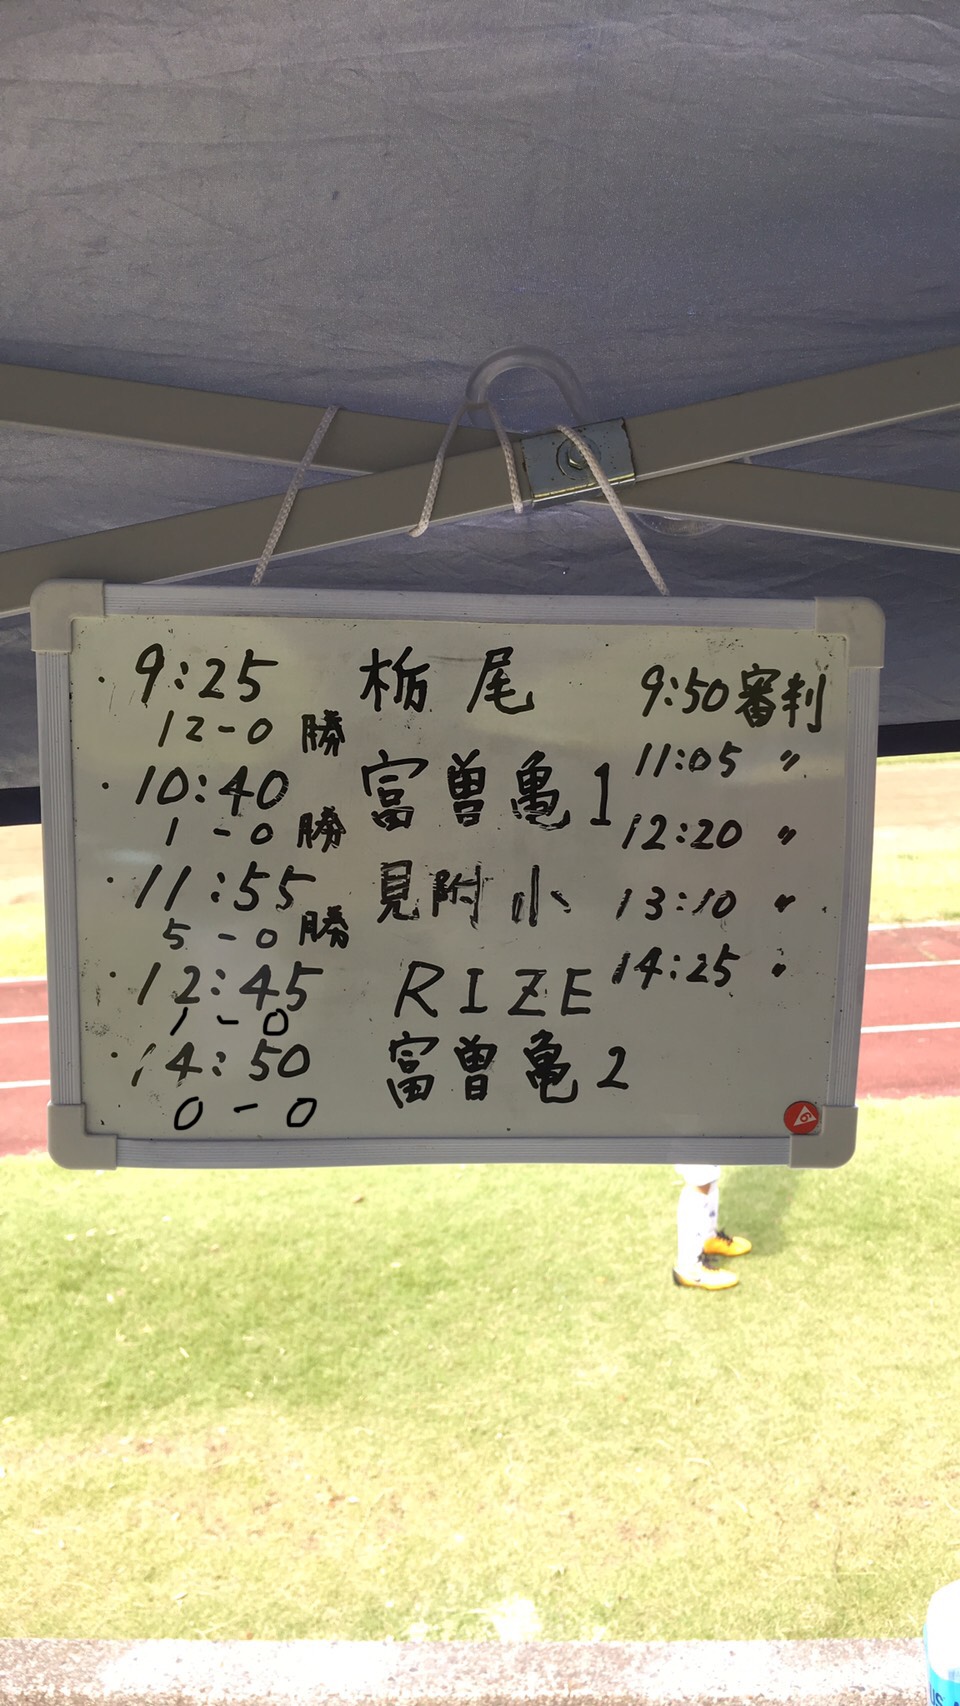 ・9:25 栃尾 9:50 審判
12-0 勝
11:05 〃
・10:40 富曽亀1
1-0 勝
12:20 〃
・11:55 見附小 13:10 〃
5-0 勝
・12:45 RIZE 14:25 〃
1-0
・14:50 富曽亀2
0-0